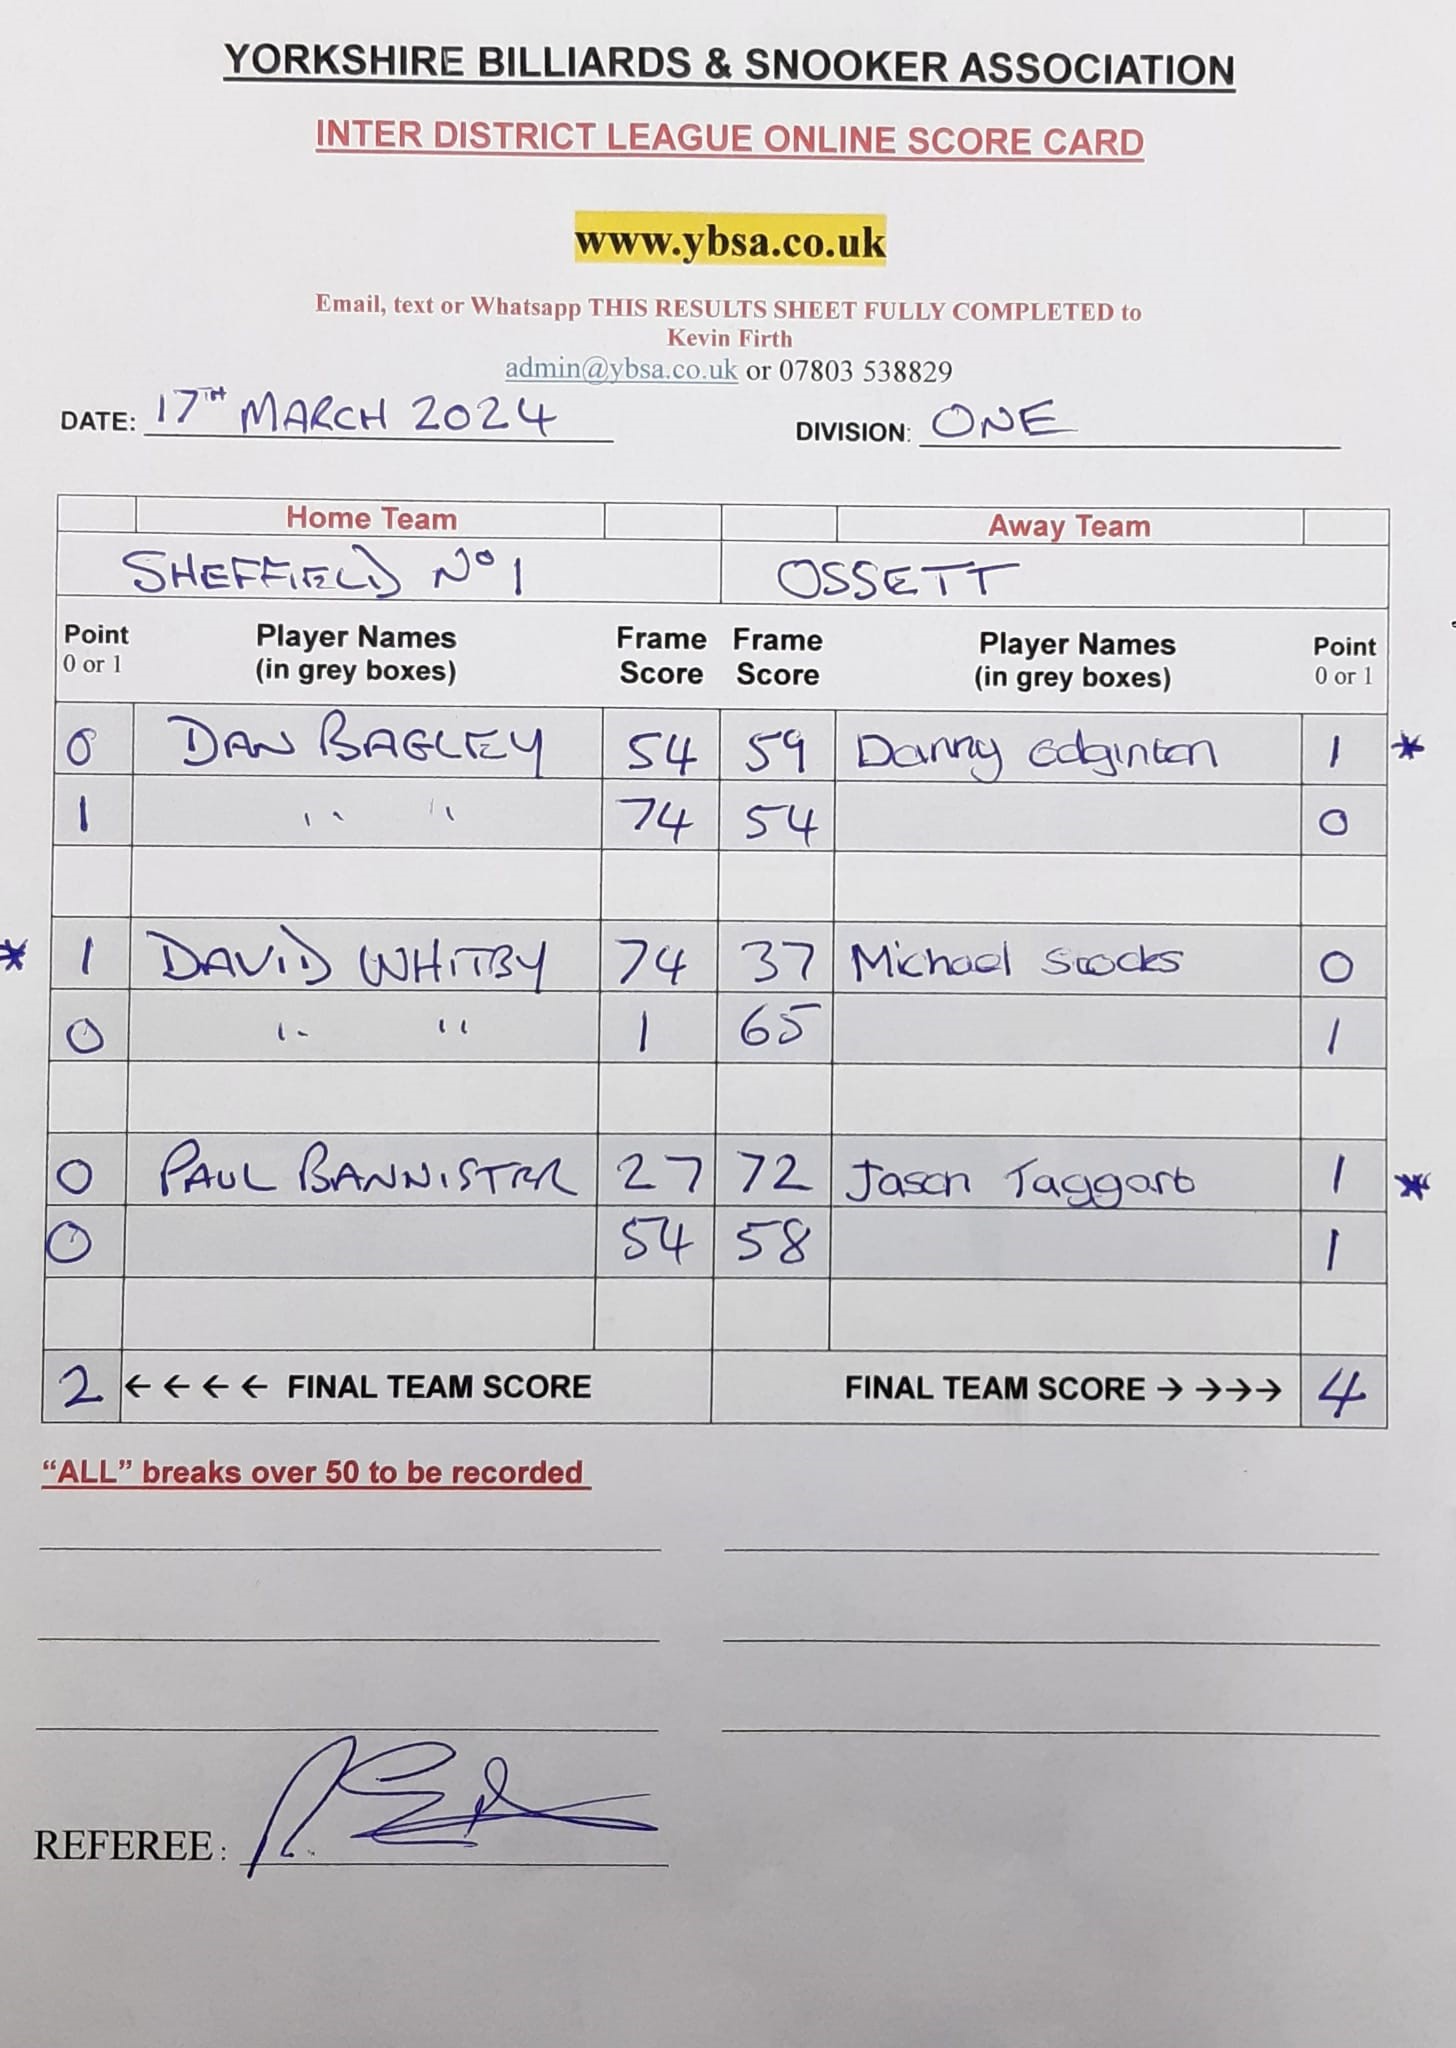 YORKSHIRE BILLIARDS & SNOOKER ASSOCIATION
INTER DISTRICT LEAGUE ONLINE SCORE CARD
www.ybsa.co.uk
Email, text or Whatsapp THIS RESULTS SHEET FULLY COMPLETED to
Kevin Firth
admin@ybsa.co.uk or 07803 538829
DATE: 17TH MARCH 2024 DIVISION: ONE
Home Team Away Team
SHEFFIELD Nº 1 OSSETT
Point Player Names Frame Frame Player Names Point
0 or 1 (in grey boxes) Score Score (in grey boxes) 0 or 1
0 DAN BAGLEY 54 59 Danny Edginton 1 *
1 " " 74 54 0
* 1 DAVID WHITBY 74 37 Michael Stocks 0
0 " " 1 65 1
0 PAUL BANNISTER 27 72 Jason Taggart 1 *
0 54 58 1
2 ← ← ← ← FINAL TEAM SCORE FINAL TEAM SCORE → →→→ 4
“ALL” breaks over 50 to be recorded
REFEREE: